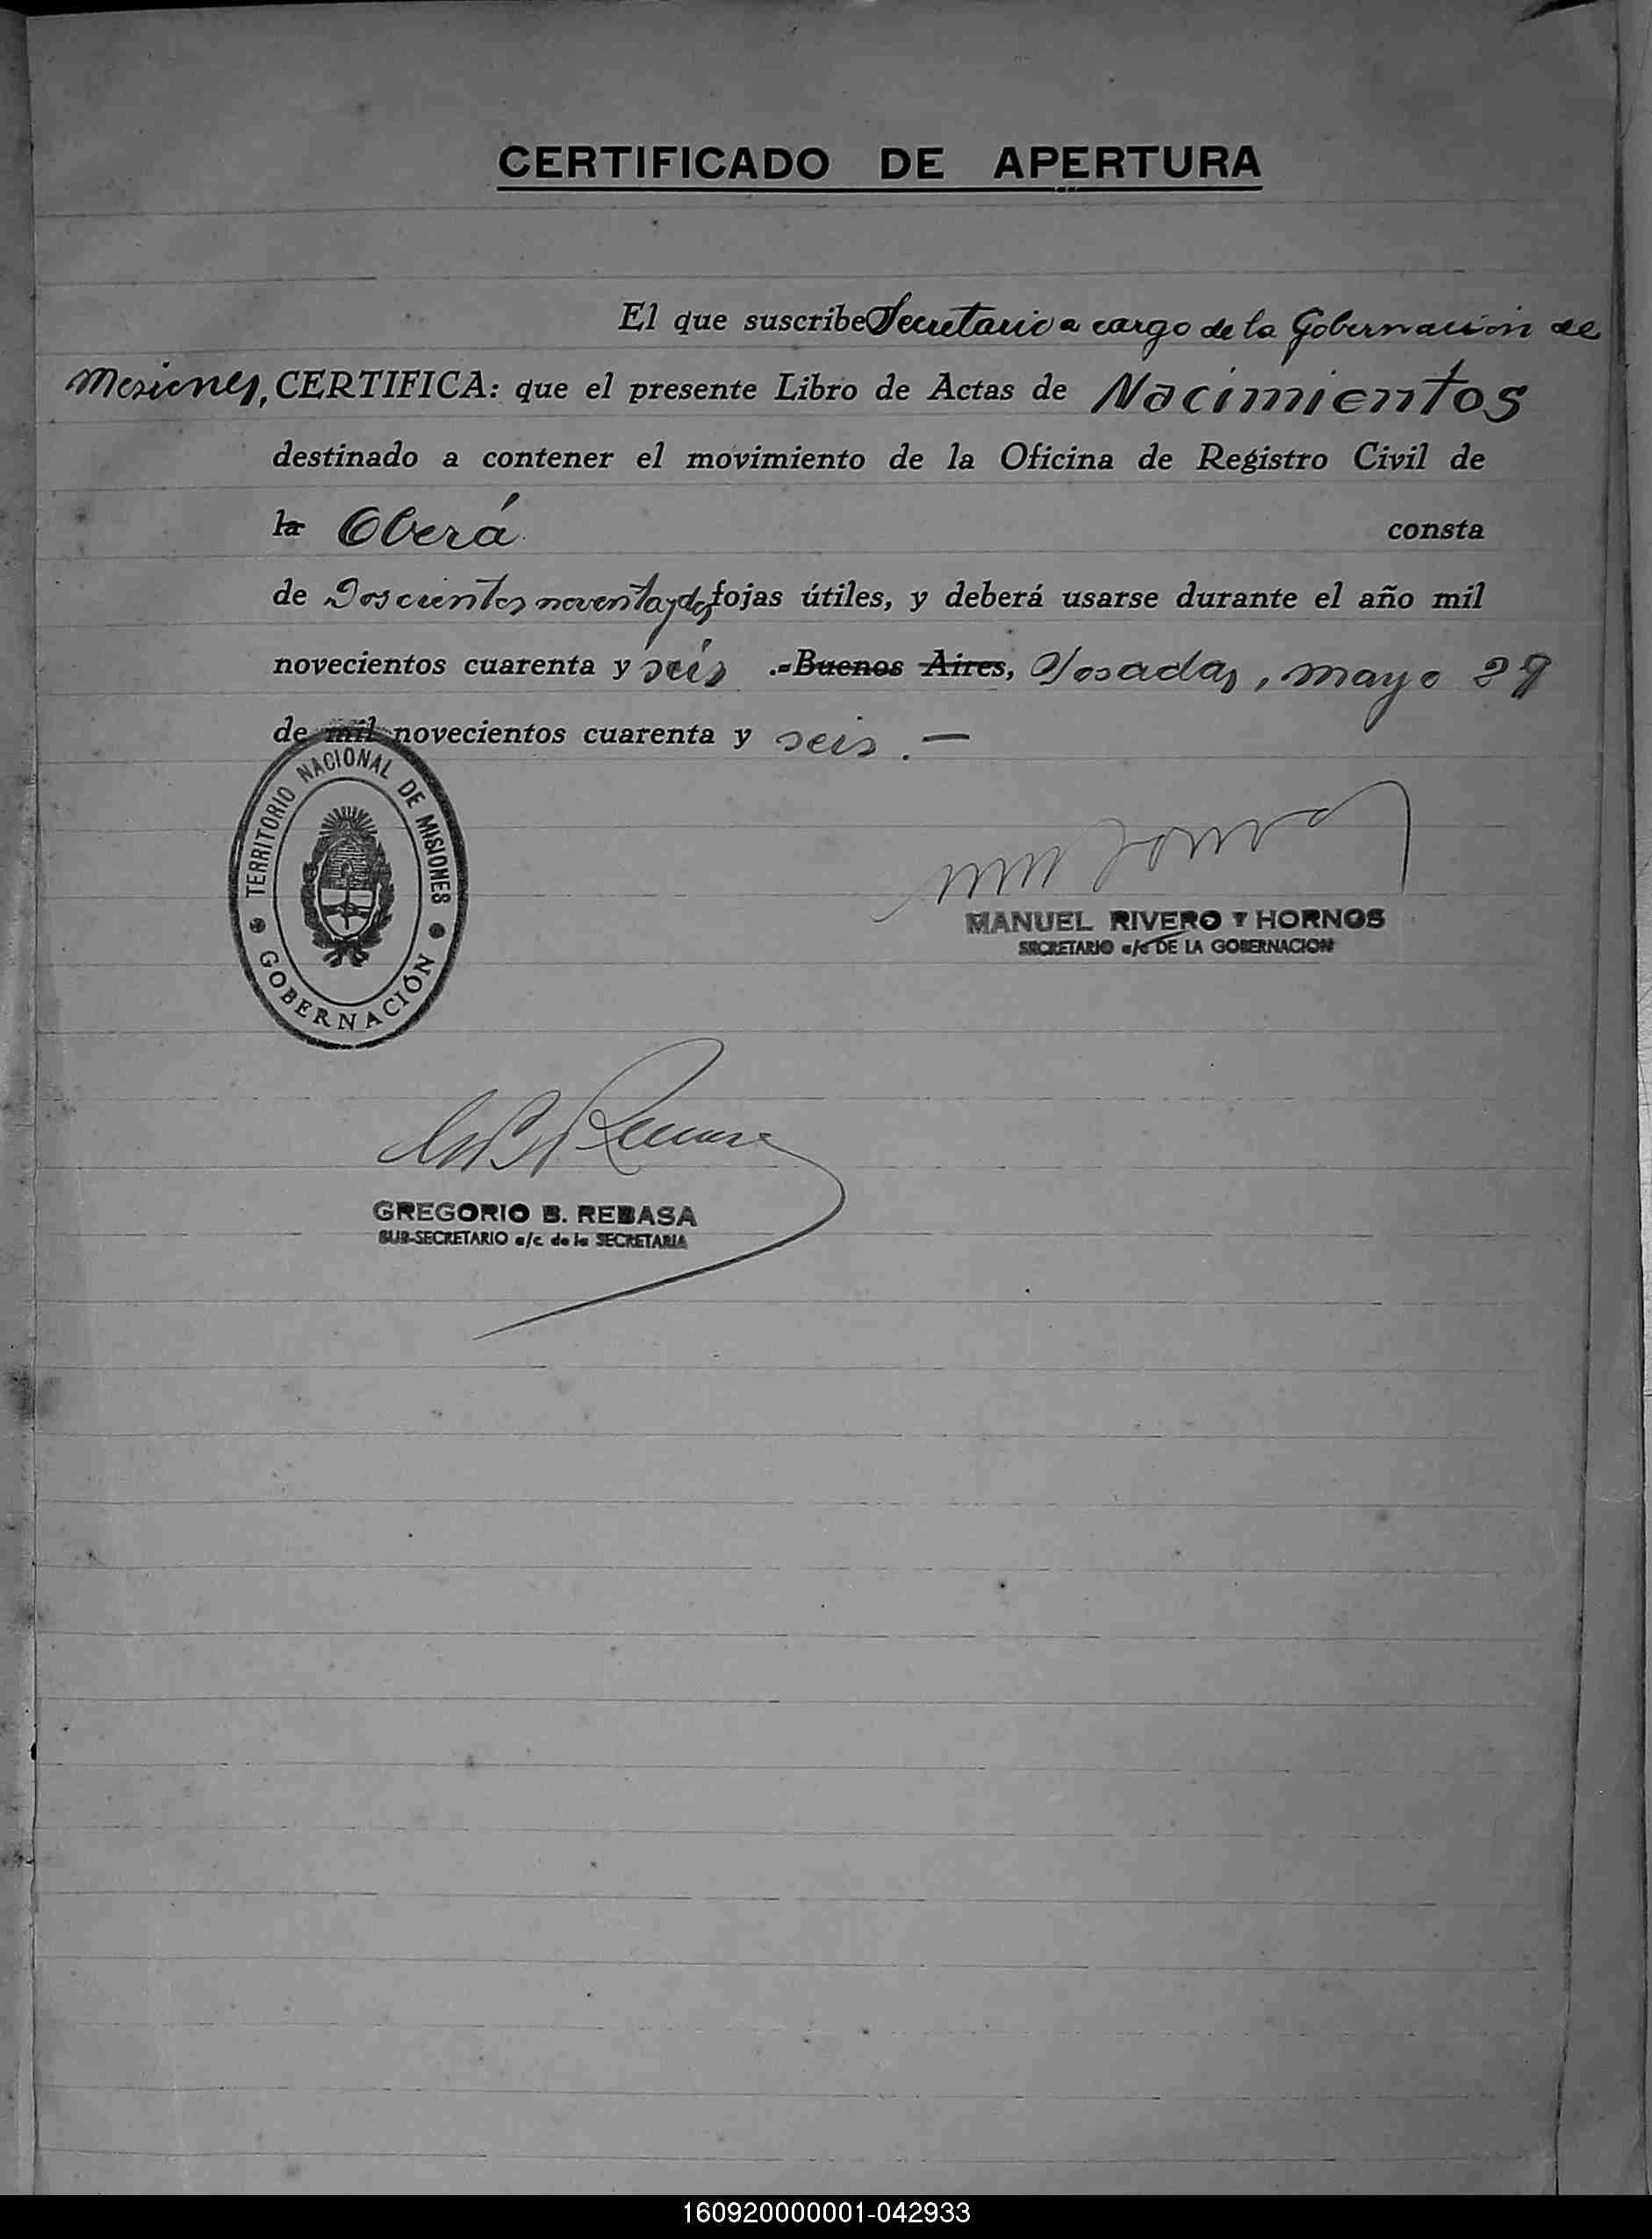 CERTIFICADO DE APERTURA
El que suscribe Secretario a cargo de la Gobernación de
Misiones, CERTIFICA: que el presente Libro de Actas de Nacimientos
destinado a contener el movimiento de la Oficina de Registro Civil de
la Oberá consta
de Doscientos noventa y dos fojas útiles, y deberá usarse durante el año mil
novecientos cuarenta y seis .-Buenos Aires, Posadas, mayo 29
de mil novecientos cuarenta y seis. —
TERRITORIO NACIONAL DE MISIONES
GOBERNACIÓN
MANUEL RIVERO Y HORNOS
SECRETARIO a/c DE LA GOBERNACION
GREGORIO B. REBASA
SUB-SECRETARIO a/c de la SECRETARIA
160920000001-042933